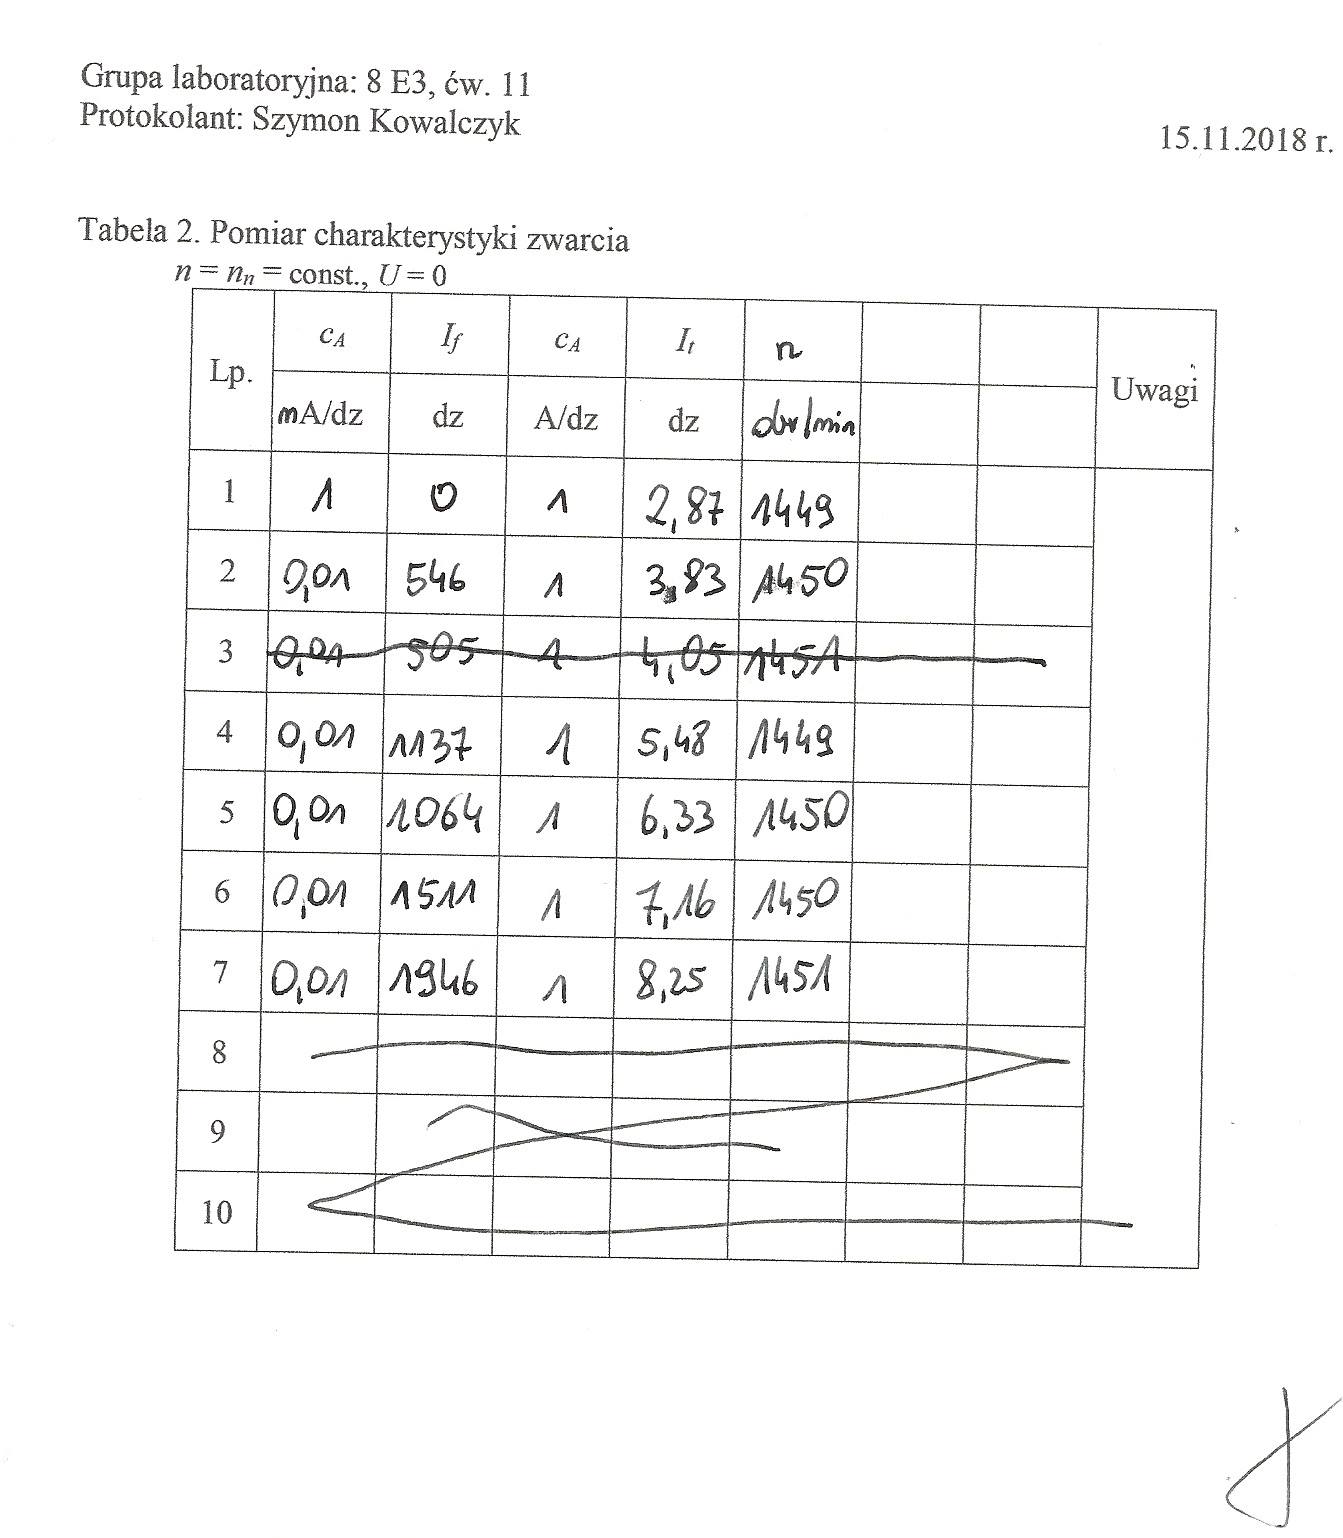 Grupa laboratoryjna: 8 E3, ćw. 11
Protokolant: Szymon Kowalczyk
15.11.2018 r.
Tabela 2. Pomiar charakterystyki zwarcia
n = nn = const., U = 0
Lp. cA If cA It n Uwagi
mA/dz dz A/dz dz obr/min
1 1 0 1 2,87 1449
2 0,01 546 1 3,83 1450
3 0,01 505 1 4,05 1451
4 0,01 1137 1 5,48 1449
5 0,01 1064 1 6,33 1450
6 0,01 1511 1 7,16 1450
7 0,01 1946 1 8,25 1451
8
9
10